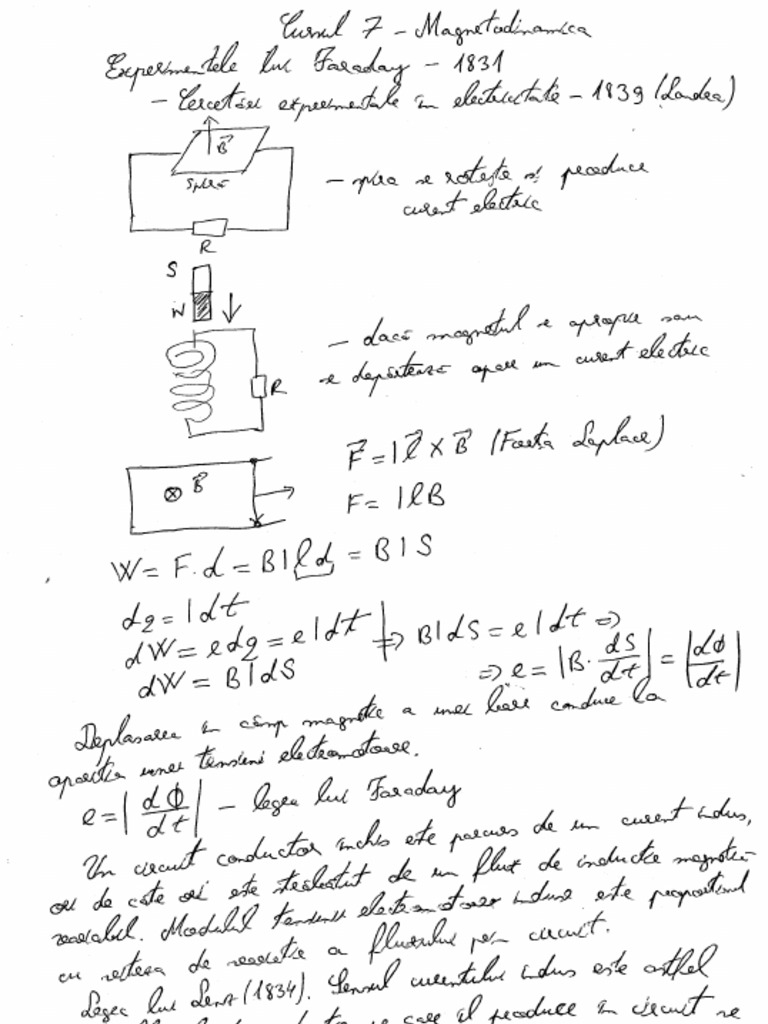 Cursul 7 – Magnetodinamica
Experimentele lui Faraday – 1831
– Cercetări experimentale în electricitate – 1839 (Londra)
B
Spiră
– spira se rotește și produce
curent electric
R
S
N
– dacă magnetul se apropie sau
se depărtează apare un curent electric
R
F = I l × B (Forța Laplace)
B
F = I l B
W = F·d = B I l d = B I S
dq = I dt
dW = e dq = e I dt
dW = B I dS
⇒ B I dS = e I dt ⇒
⇒ e = |B · dS/dt| = |dΦ/dt|
Deplasarea în câmp magnetic a unei bare conduce la
apariția unei tensiuni electromotoare.
e = |dΦ/dt| – legea lui Faraday
Un circuit conductor închis este parcurs de un curent indus,
ori de câte ori este străbătut de un flux de inducție magnetică
variabil. Modulul tensiunii electromotoare induse este proporțional
cu viteza de variație a fluxului prin circuit.
Legea lui Lenz (1834). Sensul curentului indus este astfel
pe care îl produce în circuit se